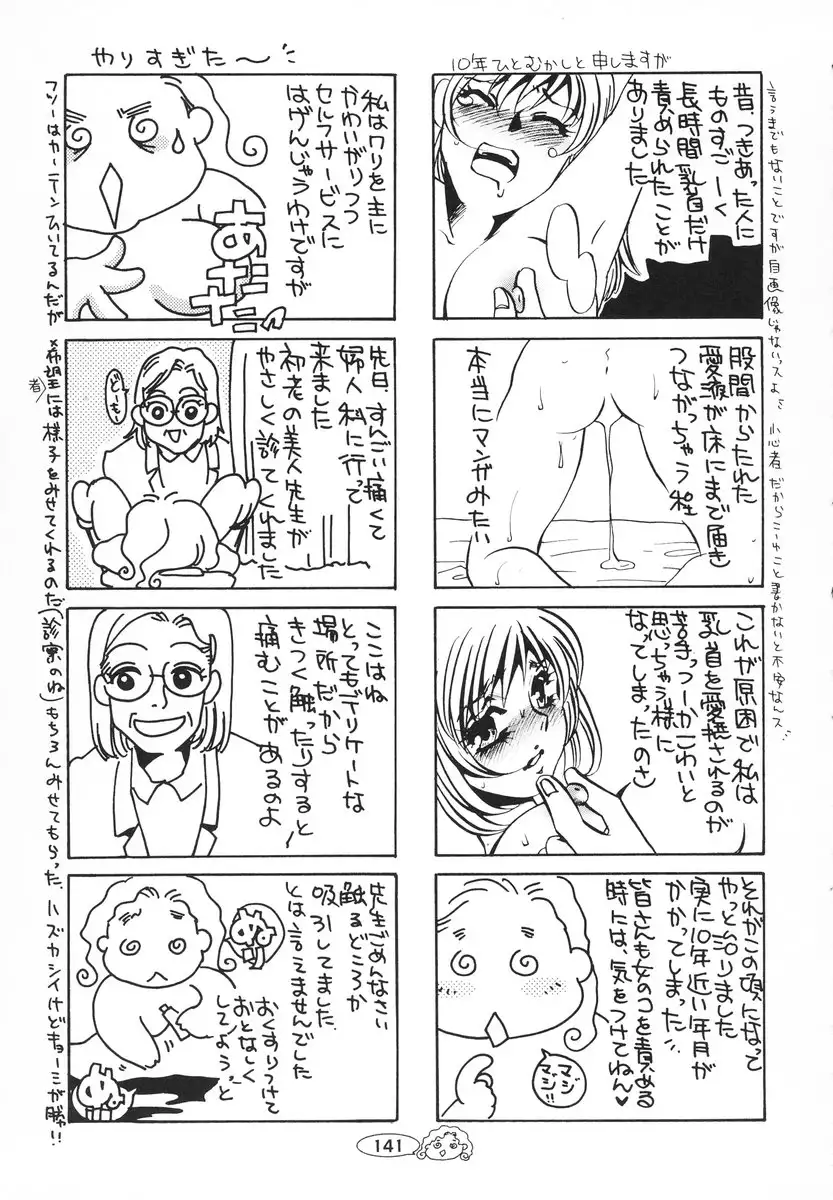 10年ひとむかしと申しますが
昔、つきあった人に
ものすごーく
長時間乳首だけ
責められたことが
ありました
股間からたれた
愛液が床にまで届き
つながっちゃう程
本当にマンガみたい
これが原因で私は
乳首を愛撫されるのが
苦手っつーかこわいと
思っちゃう様に
なってしまったのさ
それがこの頃になって
やっと治りました
実に10年近い年月が
かかってしまった
皆さんも女のコを責める
時には、気をつけてねん♥
マジ
マジ!!
言うまでもないことですが自画像じゃないっスよ 小心者だからこーゆこと書かないと不安なんス
やりすぎた〜
私はクリを主に
かわいがりつつ
セルフサービスに
はげんじゃうわけですが
あだだだ
先日、すんごい痛くて
婦人科に行って
来ました
初老の美人先生が
やさしく診てくれました
どーも
ここはね
とってもデリケートな
場所だから
きつく触ったりすると
痛むことがあるのよ
先生ごめんなさい
触るどころか
吸引してました
とは言えませんでした
おくすりつけて
おとなしく
してようっと
フツーはカーテンひいてるんだが
*希望者には様子をみせてくれるのだ(診察のね)もちろんみせてもらった、ハズカシイけどキョーミが勝ツ!!
141